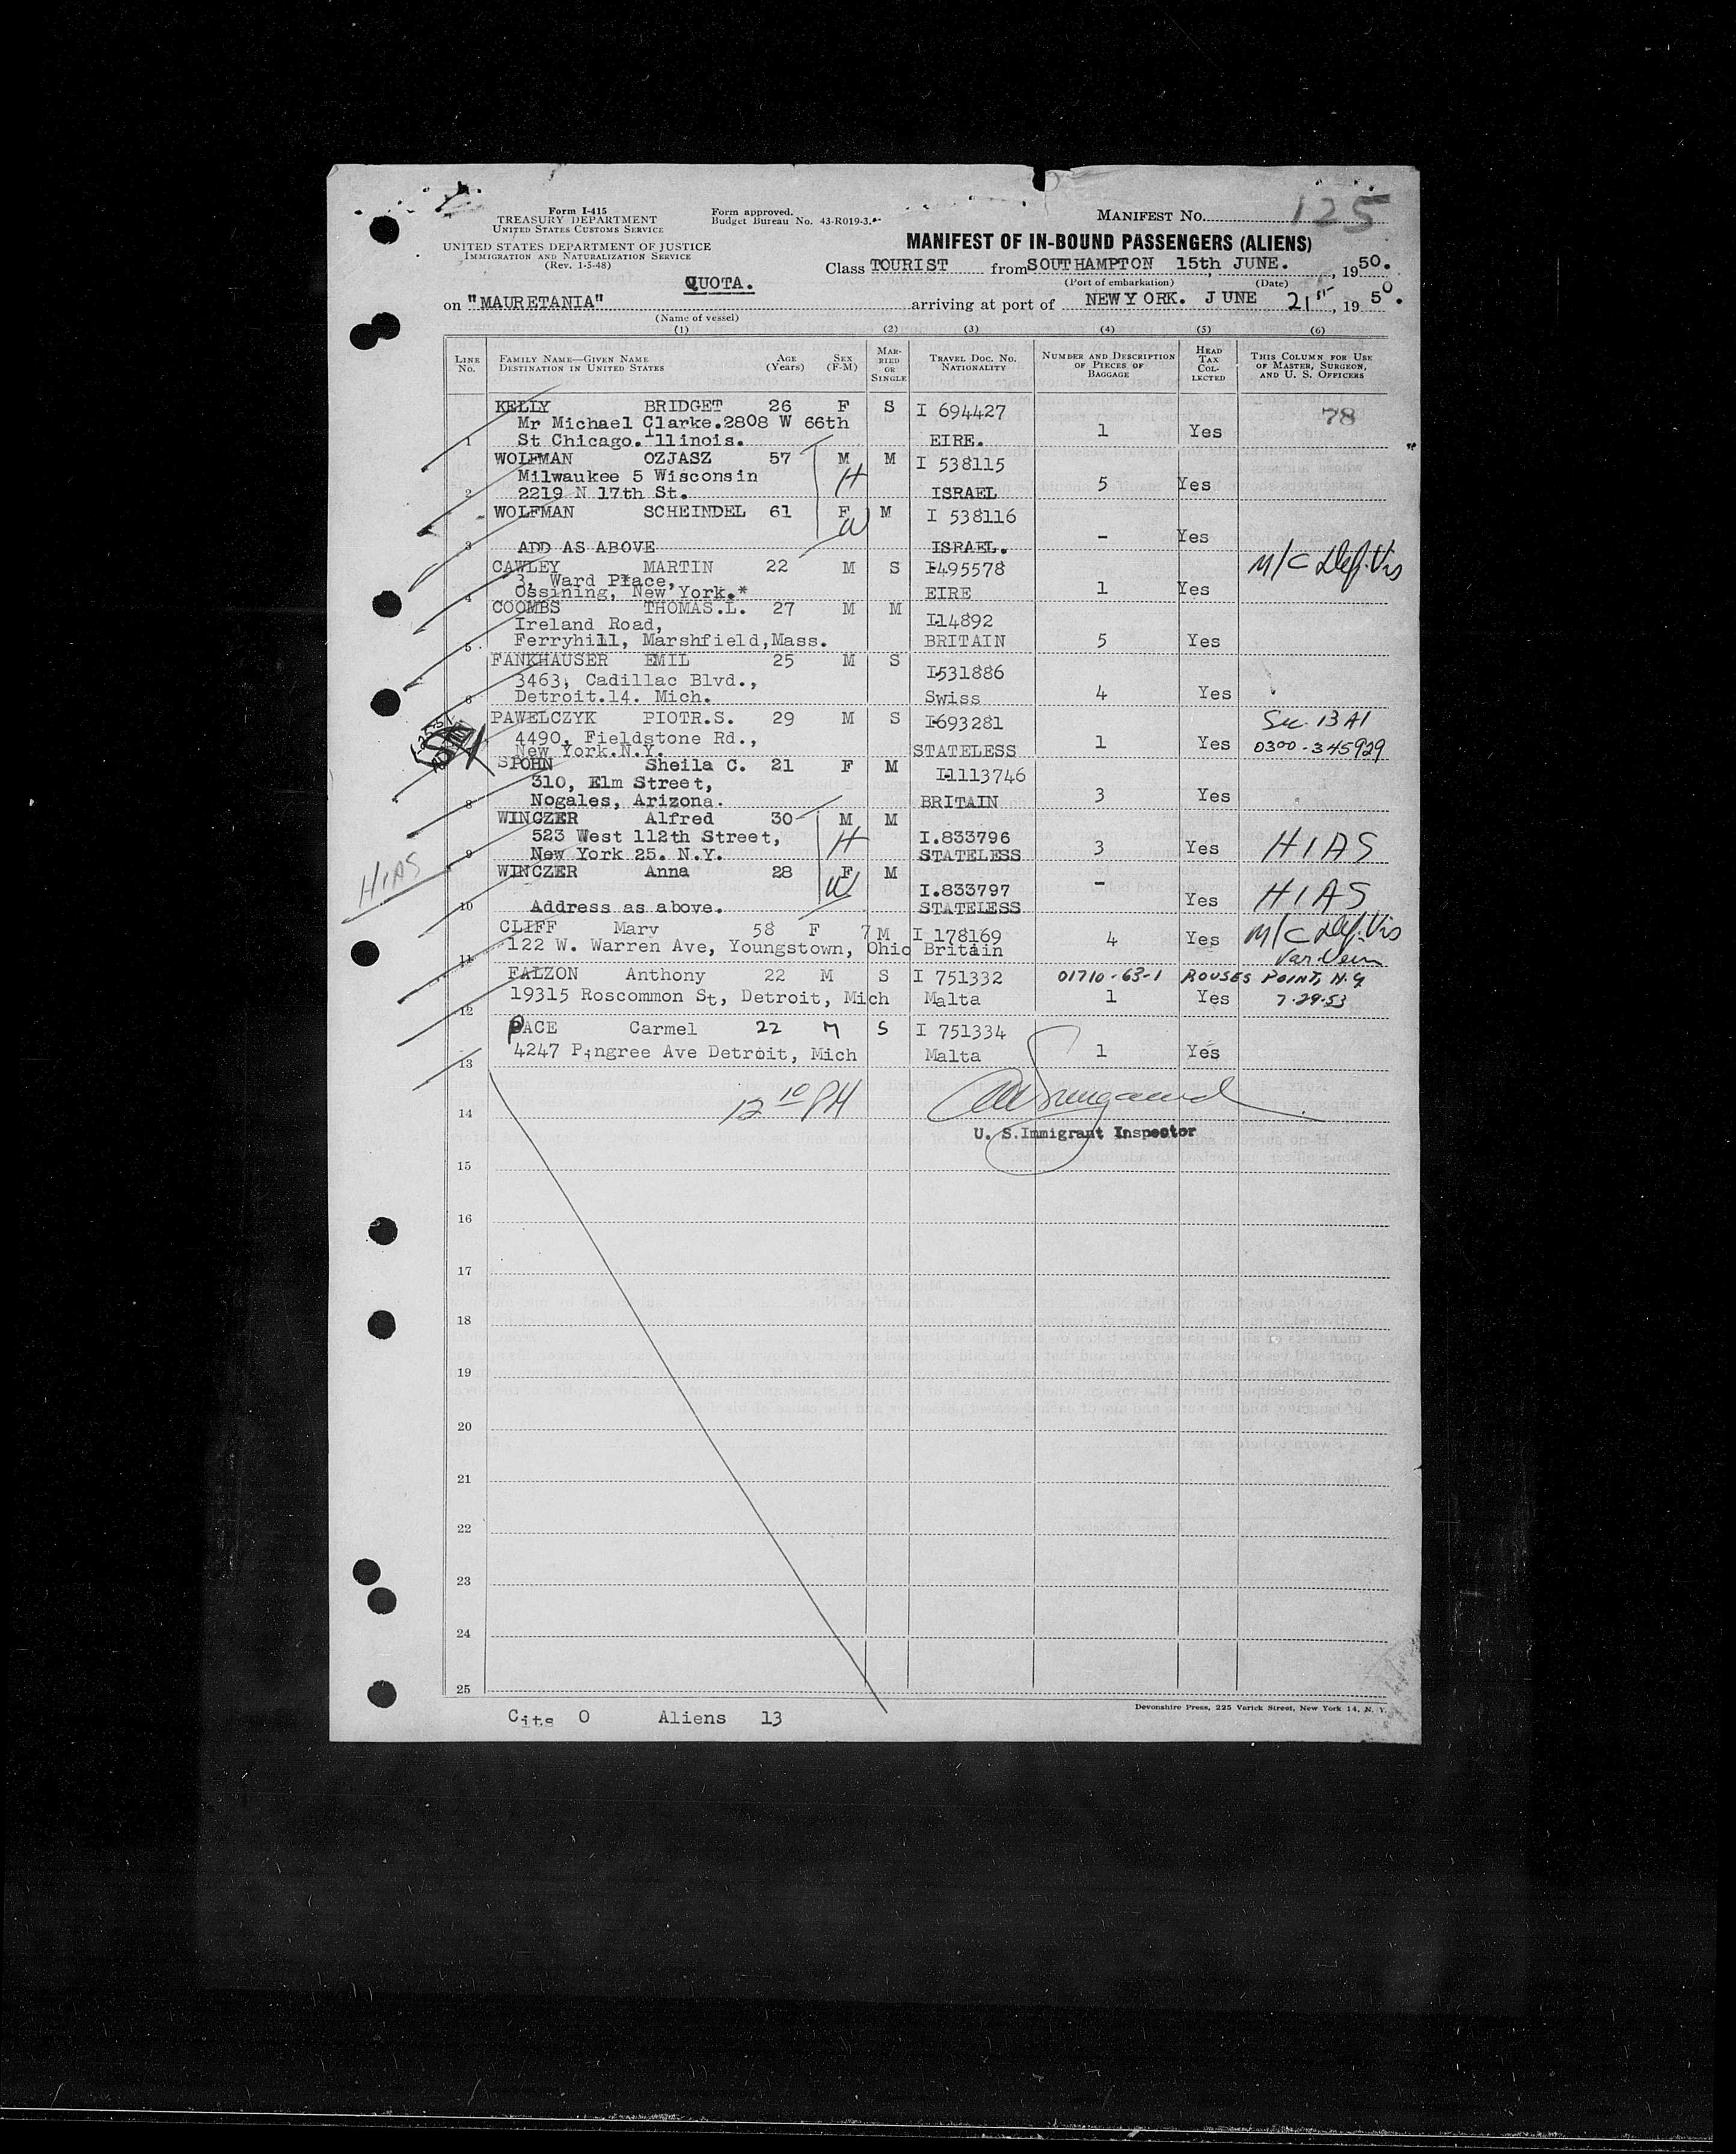 Form I-415
TREASURY DEPARTMENT
UNITED STATES CUSTOMS SERVICE
UNITED STATES DEPARTMENT OF JUSTICE
IMMIGRATION AND NATURALIZATION SERVICE
(Rev. 1-5-48)
Form approved.
Budget Bureau No. 43-R019-3.
MANIFEST NO. 125
MANIFEST OF IN-BOUND PASSENGERS (ALIENS)
Class TOURIST from SOUTHAMPTON 15th JUNE. , 1950.
(Port of embarkation) (Date)
QUOTA.
on "MAURETANIA" arriving at port of NEW YORK. JUNE 21st , 1950.
(Name of vessel)
(1) (2) (3) (4) (5) (6)
LINE NO. FAMILY NAME—GIVEN NAME DESTINATION IN UNITED STATES AGE (Years) SEX (F-M) MARRIED OR SINGLE TRAVEL DOC. NO. NATIONALITY NUMBER AND DESCRIPTION OF PIECES OF BAGGAGE HEAD TAX COLLECTED THIS COLUMN FOR USE OF MASTER, SURGEON, AND U. S. OFFICERS
KELLY BRIDGET 26 F S I 694427 78
Mr Michael Clarke.2808 W 66th
1 St Chicago. Illinois. EIRE. 1 Yes
WOLFMAN OZJASZ 57 M M I 538115
Milwaukee 5 Wisconsin H
2 2219 N 17th St. ISRAEL 5 Yes
WOLFMAN SCHEINDEL 61 F M I 538116
W
3 ADD AS ABOVE ISRAEL. - Yes
CAWLEY MARTIN 22 M S I495578 M/C Def. Vis
3, Ward Place,
4 Ossining, New York.* EIRE 1 Yes
COOMBS THOMAS.L. 27 M M I14892
Ireland Road,
5 Ferryhill, Marshfield,Mass. BRITAIN 5 Yes
FANKHAUSER EMIL 25 M S I531886
3463, Cadillac Blvd.,
6 Detroit.14. Mich. Swiss 4 Yes
PAWELCZYK PIOTR.S. 29 M S I693281 Sec. 13 A1
4490, Fieldstone Rd., 0300-345929
New York.N.Y. STATELESS 1 Yes
SPOHN Sheila C. 21 F M I1113746
310, Elm Street,
8 Nogales, Arizona. BRITAIN 3 Yes
WINCZER Alfred 30 M M
523 West 112th Street, H I.833796
9 New York 25. N.Y. STATELESS 3 Yes HIAS
HIAS
WINCZER Anna 28 F M
W I.833797 -
10 Address as above. STATELESS Yes HIAS
CLIFF Mary 58 F 7 M I 178169 4 Yes M/C Def. Vis
11 122 W. Warren Ave, Youngstown, Ohio Britain Var. Vein
FALZON Anthony 22 M S I 751332 01710-63-1 ROUSES POINT, N.Y
12 19315 Roscommon St, Detroit, Mich Malta 1 Yes 7-29-53
PACE Carmel 22 M S I 751334
13 4247 Pingree Ave Detroit, Mich Malta 1 Yes
14 12 10 PM
U. S.Immigrant Inspector
15
16
17
18
19
20
21
22
23
24
25
Cits 0 Aliens 13
Devonshire Press, 225 Varick Street, New York 14, N. Y.